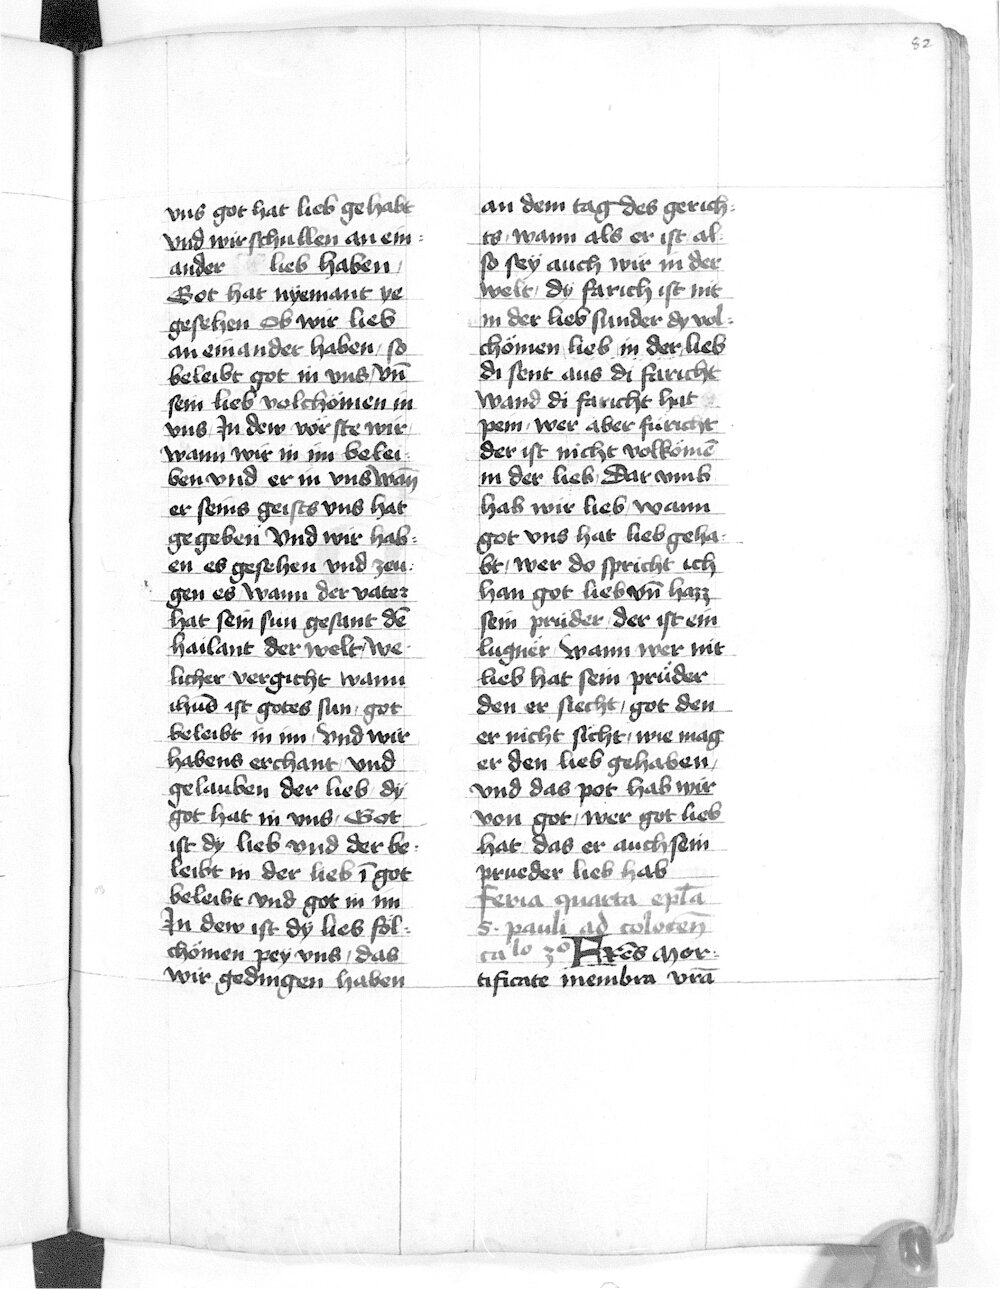 82
vns got hat lieb gehabt
vnd wir schullen an ein=
ander lieb haben /
Got hat nyemant ye
gesehen Ob wir lieb
an einander haben / so
beleibt got in vns / vn̄
sein lieb volchömen in
vns / In dew vörste wir /
wann wir in im belei=
ben vnd er in vns wan̄
er seins geists vns hat
gegeben Vnd wir hab=
en es gesehen vnd zeu=
gen es / wann der vater
hat sein sun gesant dē
hailant der welt / we=
licher vergicht wann
ihūs ist gotes sun / got
beleibt in im / Vnd wir
habens erchant / vnd
gelauben der lieb / dy
got hat in vns / Got
ist dy lieb vnd der be=
leibt in der lieb ī got
beleibt vnd got in im
In dew ist dy lieb föl=
chömen pey vns / das
wir gedingen haben
an dem tag des gerich=
ts / wann als er ist al=
so seÿ auch wir in der
welt / dy farich ist nit
in der lieb sunder dy vol=
chömen lieb in der lieb
di sent aus di faricht
wand di faricht hat
pein / wer aber füricht
der ist nicht volkömē
in der lieb / Dar vmb
hab wir lieb / wann
got vns hat lieb geha=
bt / wer do spricht ich
han got lieb vn̄ hazz
sein prüder / der ist ein
lugner / wann wer nit
lieb hat sein prüder
den er siecht / got den
er nicht sicht / wie mag
er den lieb gehaben /
vnd das pot hab wir
von got / wer got lieb
hat / das er auch sein
prueder lieb hab
Feria quarta epl̄a
S. pauli ad colocen̄
ca lo 3o Frēs Mor=
tificate membra vrā